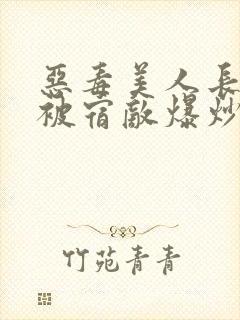 惡毒美人長
被宿敵爆炒
竹苑青青